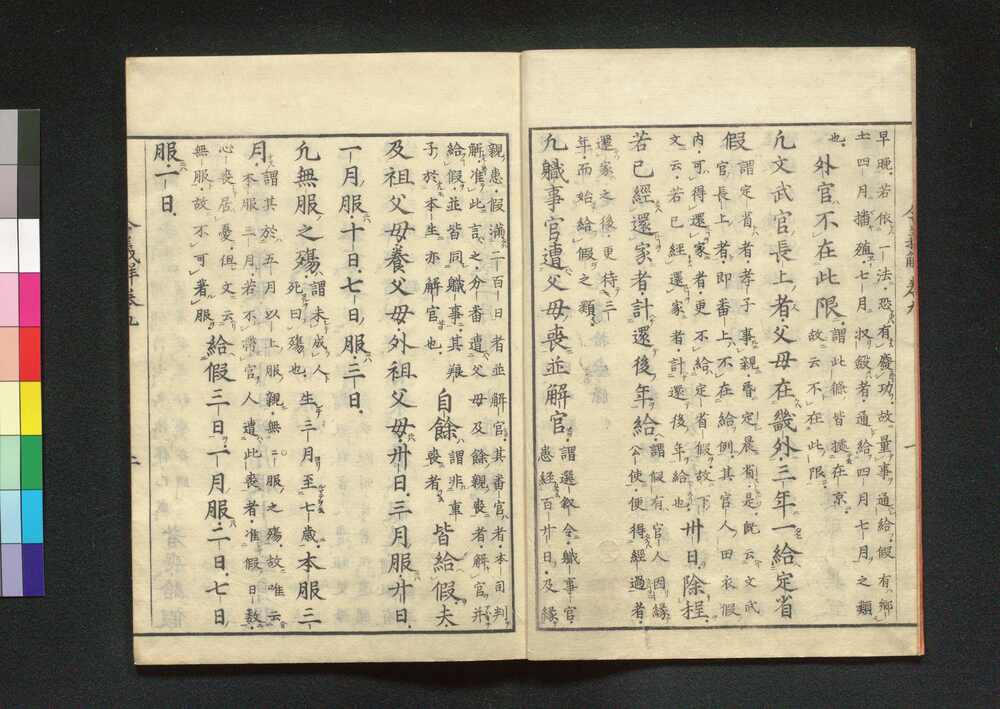 早晩。若依一法。恐有廢功。故量事通給。假有鄉
土四月播殖。七月收斂者。通給四月七月之類
也。外官不在此限。謂。此條皆據在京。
故云不在此限。
凢文武官長上者。父母在畿外。三年一給定省
假。謂。定省者。孝子事親。昬定晨省。是。旣云文武
官長上者。即番上。不在給例。其官人。田衣假
內。可得還家者。更不給定省假。故下
文云。若已經還家者。計還後年給也。卅日。除程。
若已經還家者。計還後年給。謂。假有官人因緣
公使。便得經過者。
還家之後。更待三
年。而始給假之類。
凢職事官遭父母喪並解官。謂。選敘令。職事官。
患經百廿日。及緣
親患。假滿二百日者。並解官。其番官者。本司判
解。准此言之。分番遭父母及餘親喪者。解官并
給假。並皆同職事。其
子於本生。亦解官也。自餘。謂。非重
喪者。皆給假。夫
及祖父母。養父母。外祖父母。卅日。三月服廿日。
一月服。十日。七日服。三日。
凢無服之殤。謂。未成人
死曰殤也。生三月至七歲。本服三
月。謂。其於五月以上服親。無二服之殤。故唯云
本服三月。若不帶官人遭此喪者。准假日數。
心喪居憂。但文云
無服。故不可著服。給假三日。一月服。二日。七日
服。一日。
令義解卷九
一
令義解卷九
二